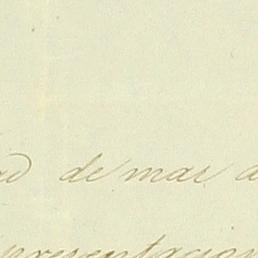 ad de mas a
presentacion